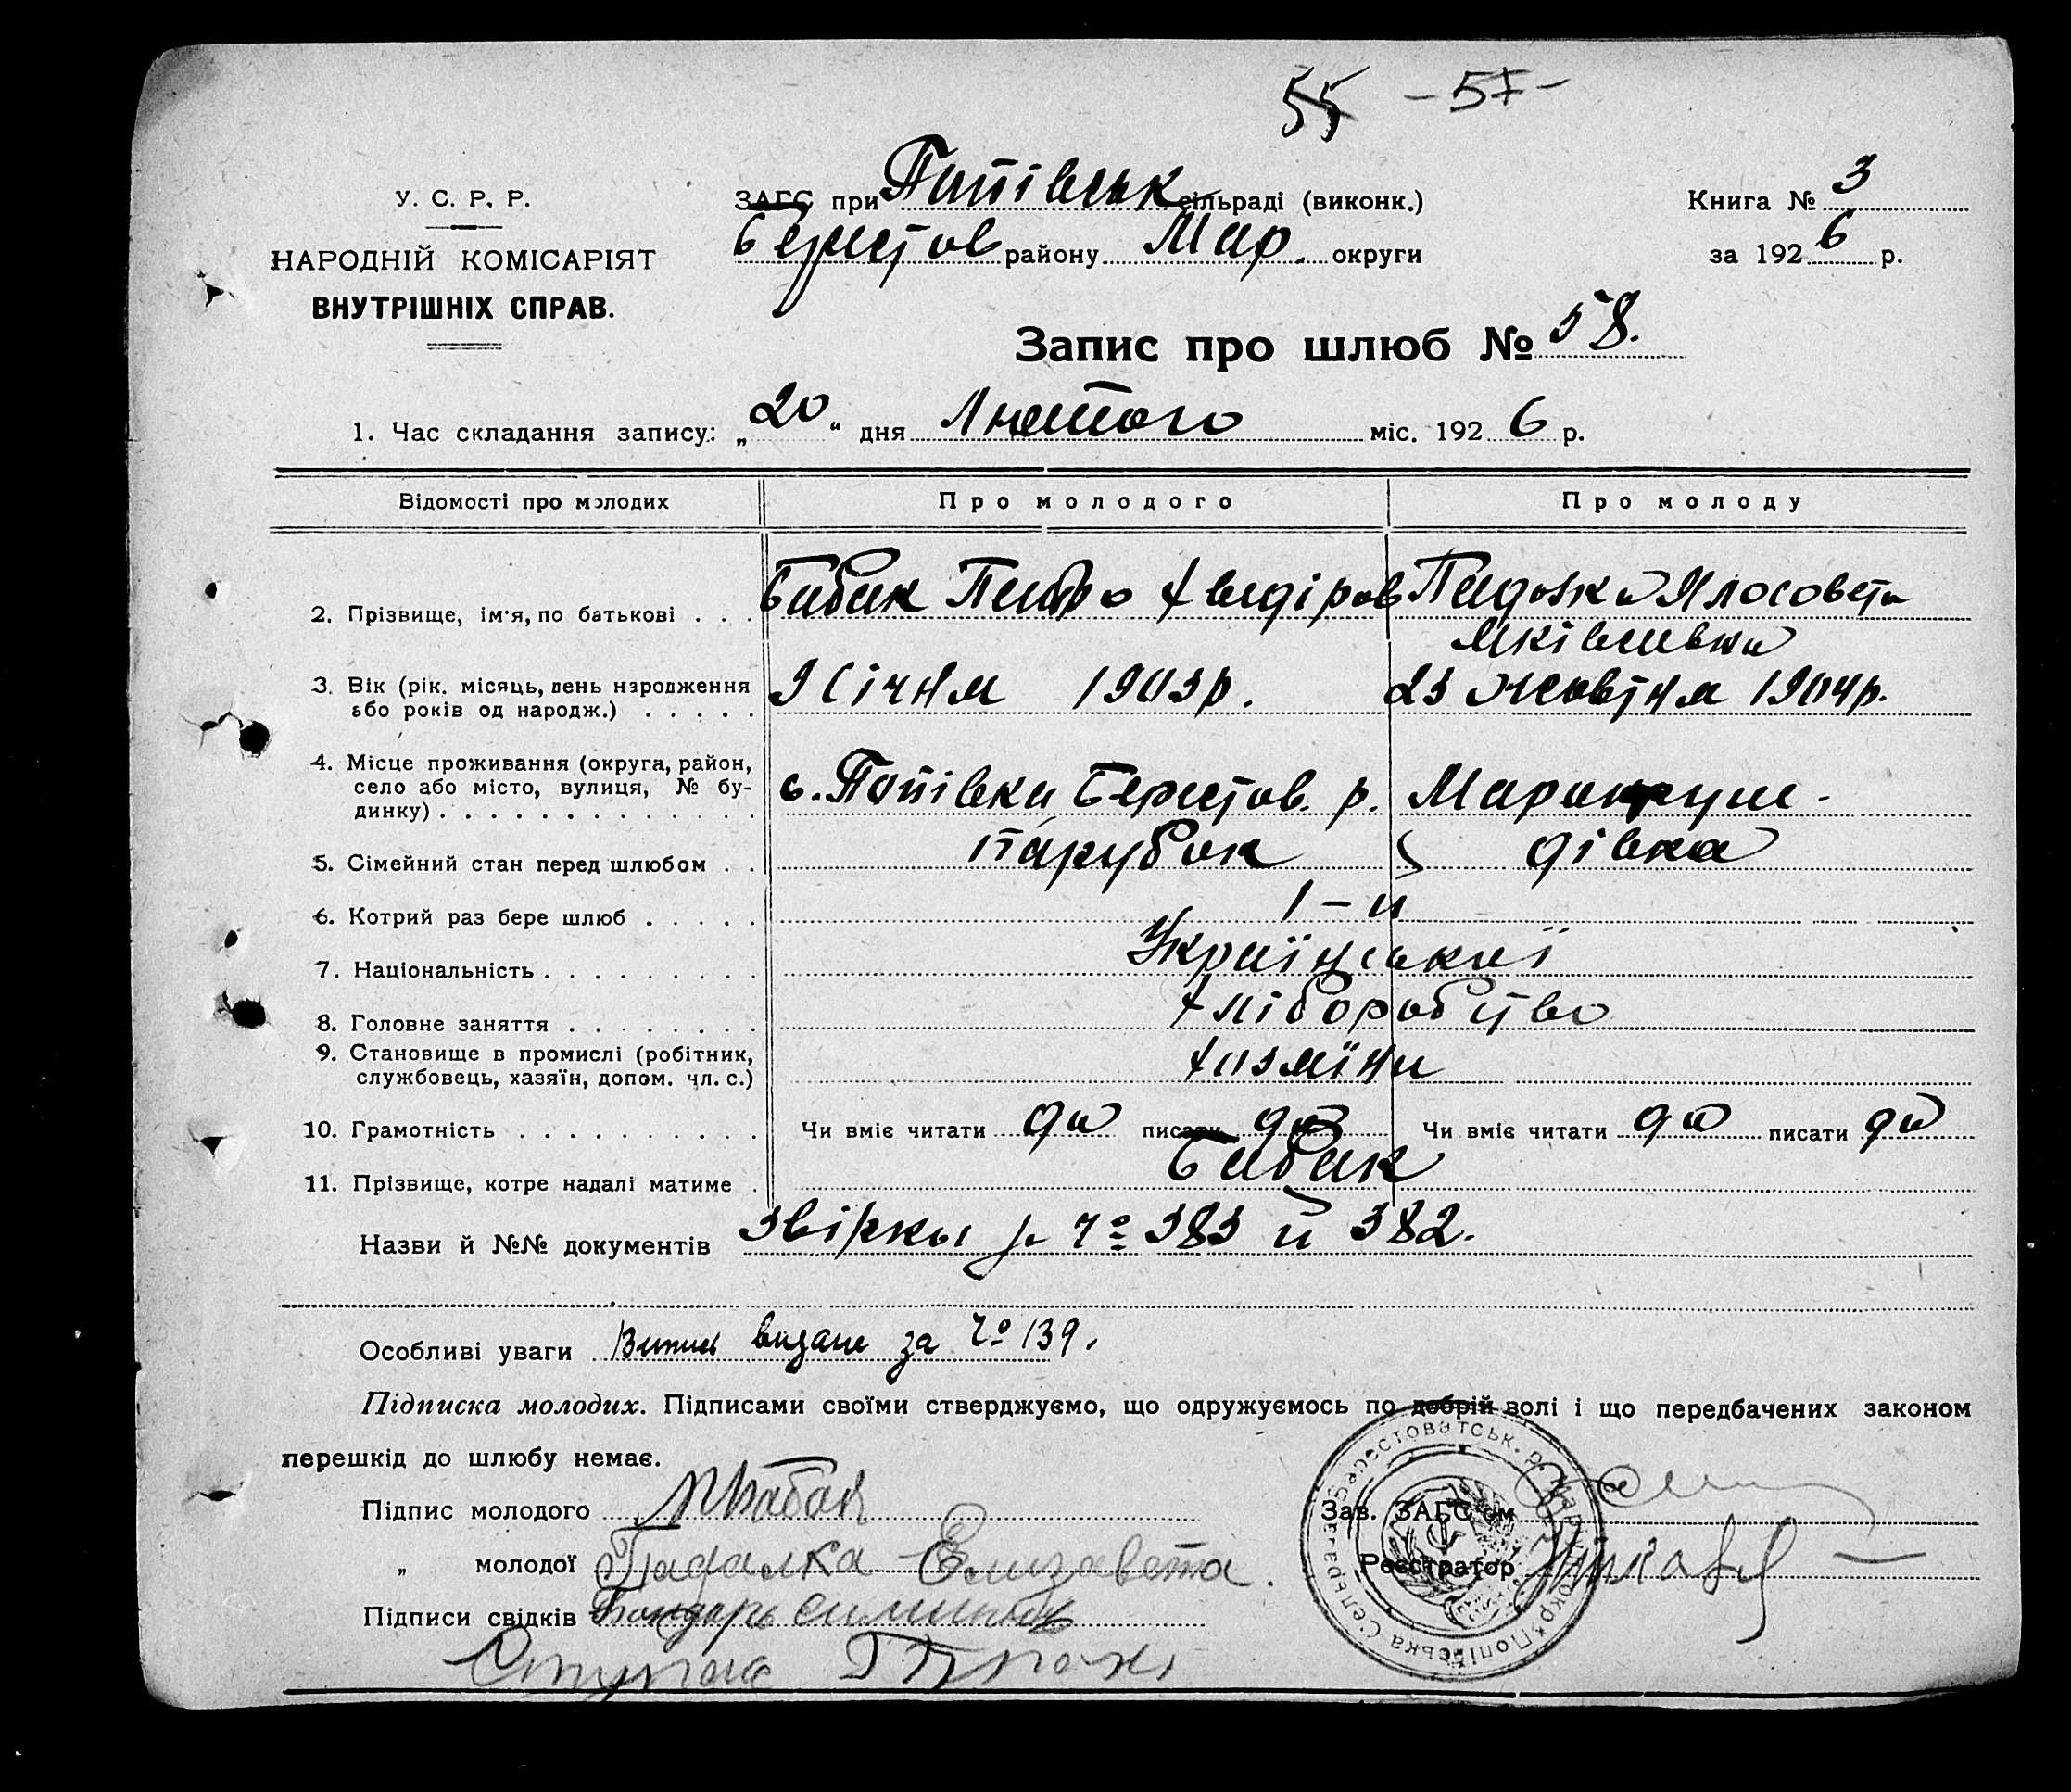 55 - 57 -
У. С. Р. Р.
НАРОДНІЙ КОМІСАРІЯТ
ВНУТРІШНІХ СПРАВ.
ЗАГС при Попівськ сільраді (виконк.)
Берестов району Мар. округи
Книга № 3
за 1926 р.
Запис про шлюб № 58.
1. Час складання запису: „20“ дня Лютого міс. 1926 р.
Відомості про молодих
Про молодого
Про молоду
2. Прізвище, ім'я, по батькові . . .
Бабак Педро Хведіров
Падалка Ялосовета
Яківлевна
3. Вік (рік. місяць, день народження
або років од народж.) . . . . .
9 Січня 1903р.
23 Жовтня 1904р.
4. Місце проживання (округа, район,
село або місто, вулиця, № бу-
динку) . . . . . . . . . . . . .
с. Попівка Берестов. р. Маріюпуш.
5. Сімейний стан перед шлюбом . .
парубок
дівка
6. Котрий раз бере шлюб . . . . .
1-й
7. Національність . . . . . . . . .
Української
8. Головне заняття . . . . . . . .
Хліборобство
9. Становище в промислі (робітник,
службовець, хазяїн, допом. чл. с.)
Хозяїни
10. Грамотність . . . . . . . . . .
Чи вміє читати да писати да
Чи вміє читати да писати да
11. Прізвище, котре надалі матиме .
Бабак
Назви й №№ документів
Звірки за № 383 й 382.
Особливі уваги Витяг видане за № 139.
Підписка молодих. Підписами своїми стверджуємо, що одружуємось по добрій волі і що передбачених законом
перешкід до шлюбу немає.
Підпис молодого П Бабак
„ молодої Падалка Елизавета.
Підписи свідків Бондарь
Зав. ЗАГС'ом
Реєстратор
Попівська Сельрада Берестоватськ. р.